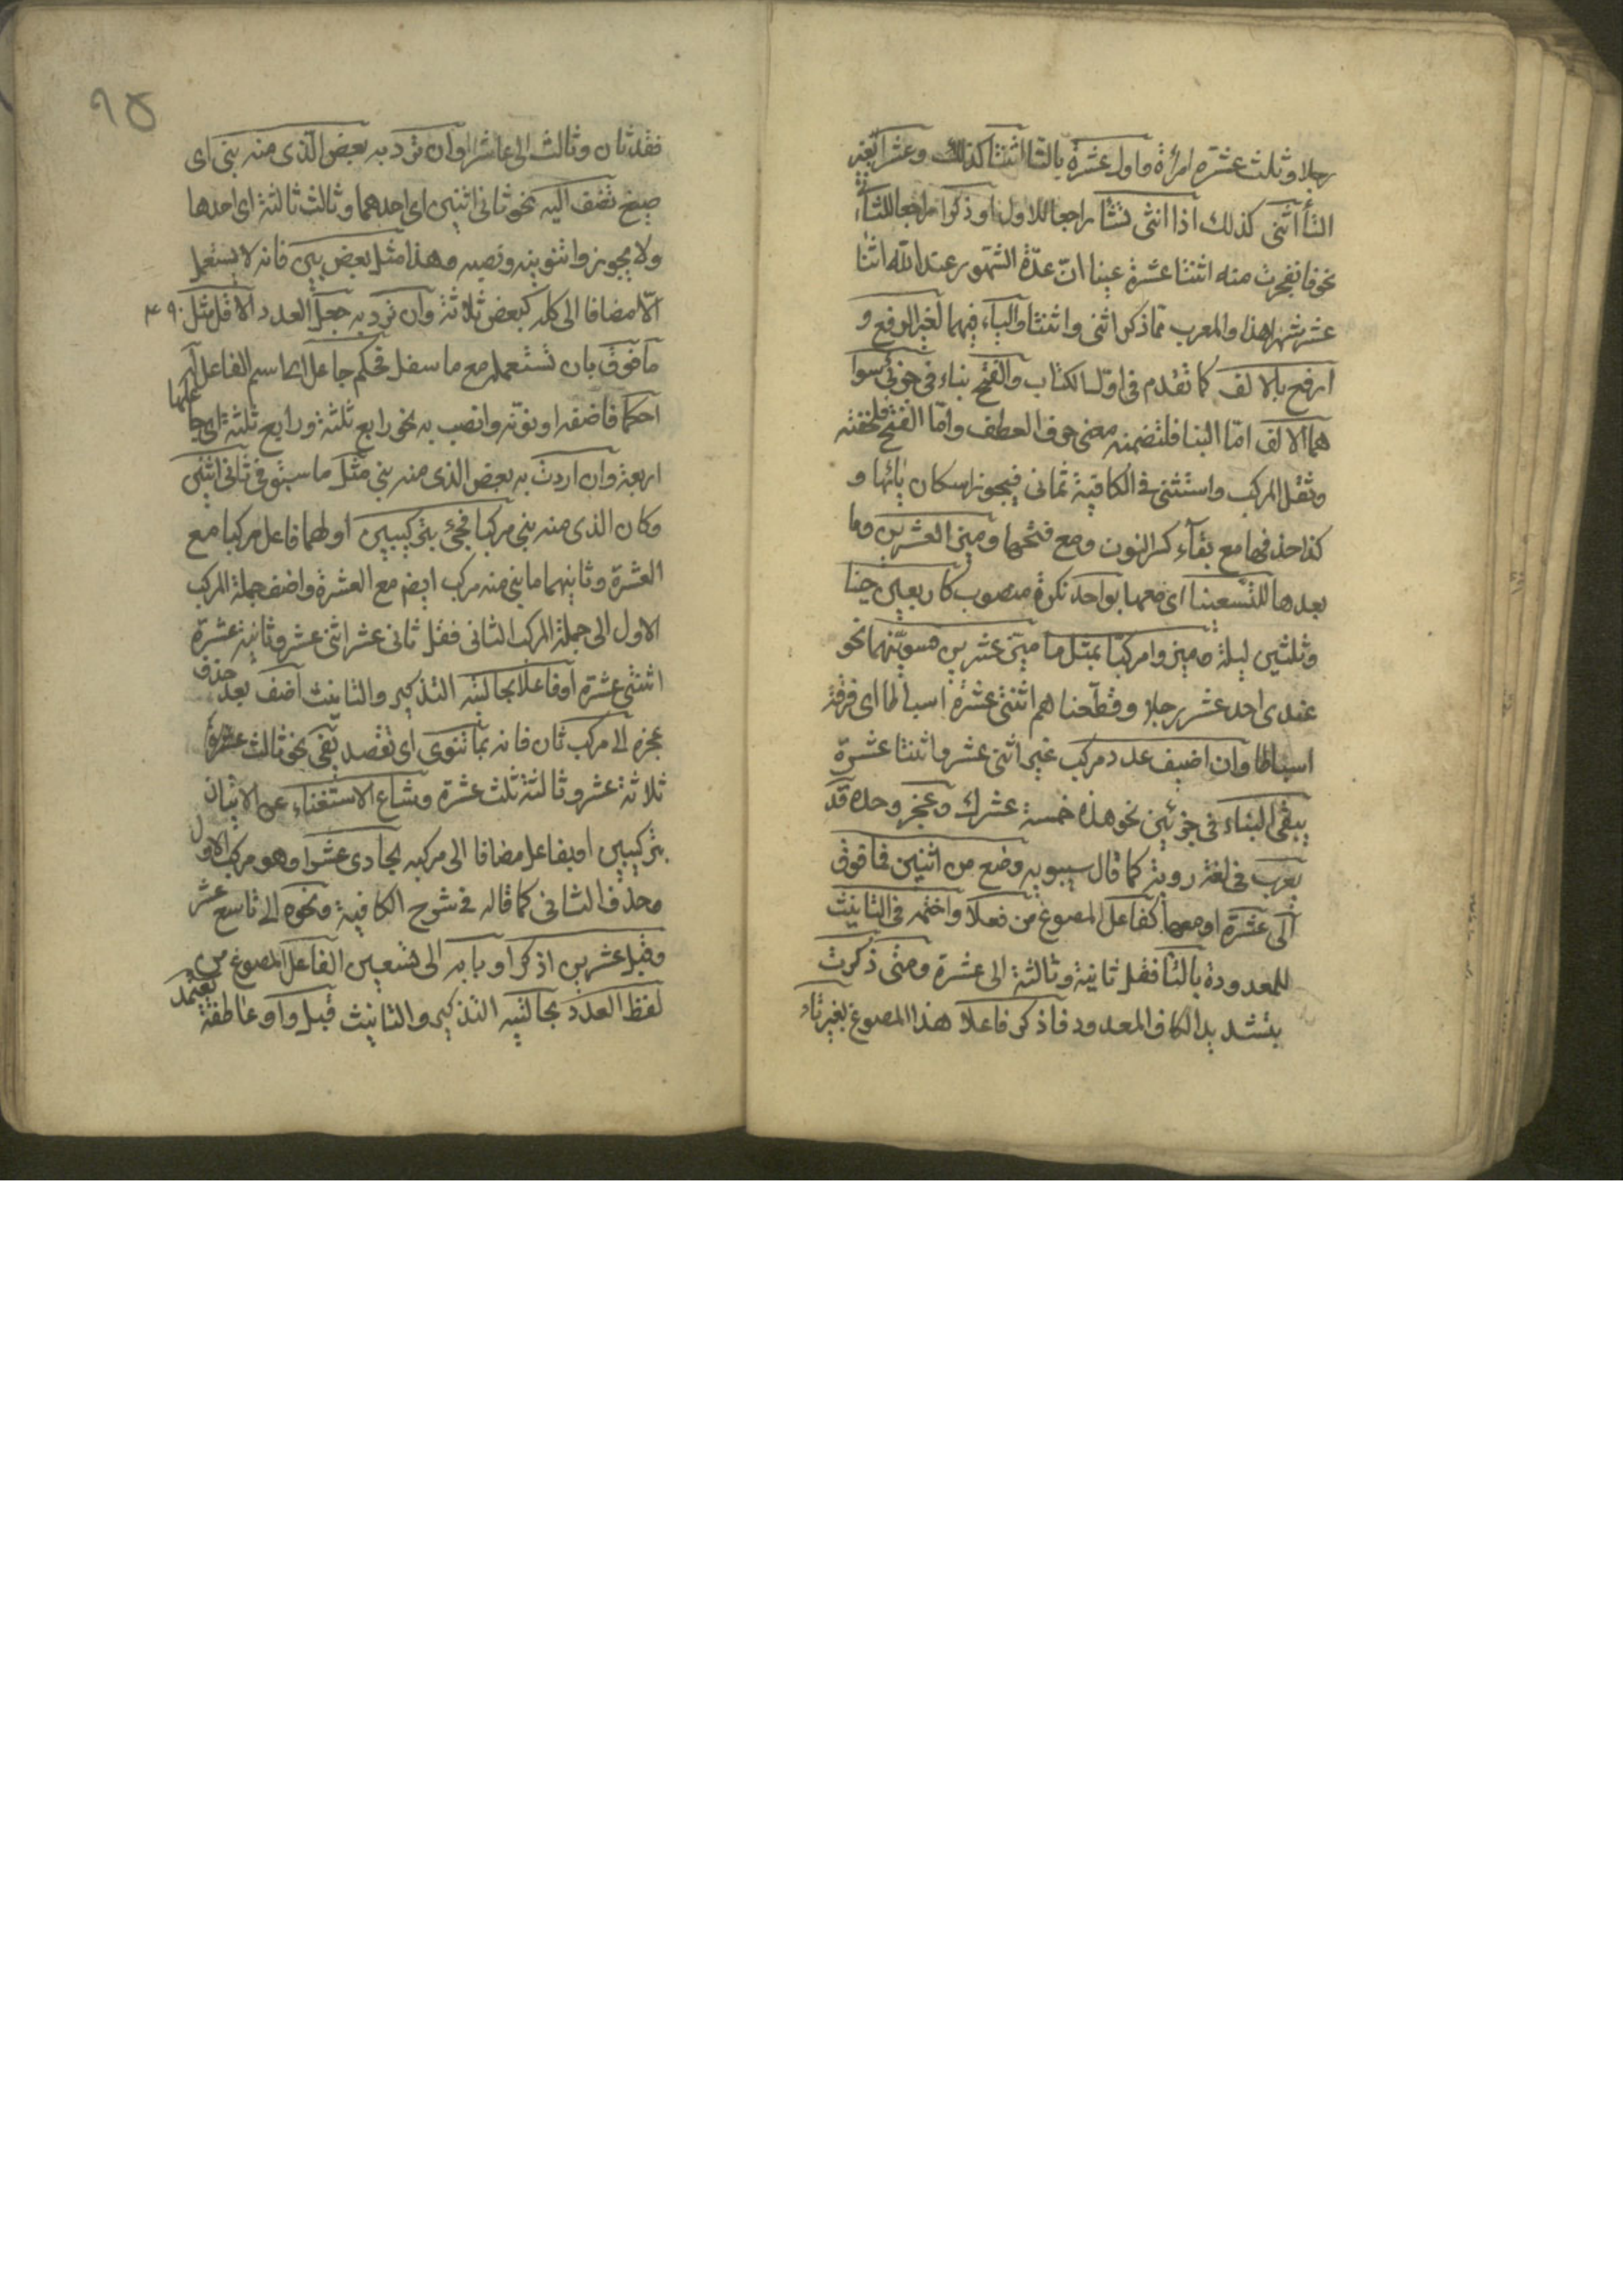 رجلا وثلث عشرة امرأة واول عشرة بالتا اثنتا كذلك وعشرا بغير
التاء اثنى كذلك اذا انثى تشا راجعا للاول او ذكرا راجعا للثانى
نحو فانفجرت منه اثنتا عشرة عينا انّ عدّة الشهور عند الله اثنا
عشر شهرا هذا والمعرب مما ذكر اثنى واثنتا والياء فيهما لغير الرفع و
ارفع بالالف كما تقدم فى اول الكتاب والفتح بناء فى جزئى سوا
هما الالف امّا البنا فلتضمنه معنى حرف العطف وامّا الفتح فلخفته
وثقل المركب واستثنى فى الكافية ثمانى فيجوز اسكان يائها و
كذا حذفها مع بقاء كسر النون ومع فتحها وميز العشرين وما
بعدها للتسعينا اى معها بواحد نكرة منصوب كاربعين حينا
وثلثين ليلة وميزوا مركبا بمثل ما ميز عشرين فسوّينهما نحو
عندى احد عشر رجلا وقطعناهم اثنتى عشرة اسباطا اى فرقة
اسباطا وان اضيف عدد مركب غير اثنى عشر واثنتا عشرة
يبقى البناء فى جزئين نحو هذه خمسة عشرك وعجز وحده قد
يعرب فى لغة روية كما قال سيبويه وصغ من اثنين فما فوق
الى عشرة او معها كفاعل المصوغ من فعلا واختمه فى التانيث
للمعدودة بالتا فقل ثانية وثالثة الى عشرة ومتى ذكرت
بتشديد الكاف المعدود فاذكر فاعلا هذا المصوغ بغير تاء
٩٥
فقل ثان وثالث الى عاشر او ان ترد به بعض الذى منه بنى اى
صيغ تضف اليه نحو ثانى اثنين اى احدهما وثالث ثالثة اى احدها
ولا يجوز وا تنوينه ونصبه وهذا مثل بعض بين فانه لا يستعمل
الّا مضافا الى كله كبعض ثلاثة وان ترد به جعل العدد الاقل مثل
ما فوق بان تستعمله مع ما سفل فحكم جاعل اى اسم الفاعل له
احكما فاضفه او نوّنه وانصب به نحو رابع ثلثة ورابع ثلثة اى جاعلها
اربعة وان اردت به بعض الذى منه بنى مثل ما سبق فى ثانى اثنين
وكان الذى منه بنى مركبا فجئ بتركيبين اولهما فاعل مركبا مع
العشرة وثانيهما ما بنى منه مركب ايضم مع العشرة واضف جملة المركب
الاول الى جملة المركب الثانى فقل ثانى عشر اثنى عشر وثانية عشرة
اثنتى عشرة او فاعلا بحالتيه التذكير والتانيث اضف بعد حذف
عجزه الى مركب ثان فانه بما تنوى اى تقصد يفى نحو ثالث عشرة
ثلاثة عشر وثالثة ثلث عشرة وشاع الاستغناء عن الاتيان
بتركيبين او بفاعل مضافا الى مركبه بحادى عشرا وهو مركب الاول
وحذف الثانى كما قاله فى شرح الكافية ونحوه الى تاسع عشر
وقبل عشرين اذكرا وبابه الى تسعين الفاعل المصوغ من
لفظ العدد بحالتيه التذكير والتانيث قبل واو عاطفة يعتمد